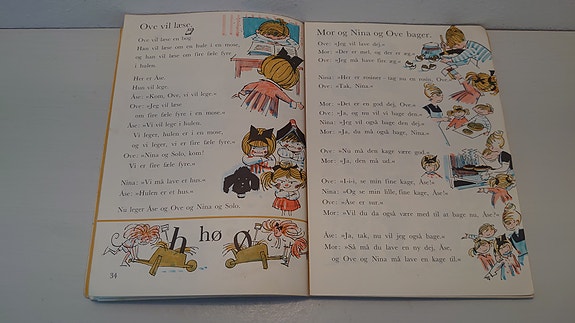 Ove vil læse.
Ove vil læse en bog.
Han vil læse om en hule i en mose,
og han vil læse om fire fæle fyre
i hulen.
Her er Åse.
Hun vil lege.
Åse: »Kom, Ove, vi vil lege.«
Ove: »Jeg vil læse
om fire fæle fyre i en mose.«
Åse: »Vi vil lege i hulen.
Vi leger, hulen er i en mose,
og vi leger, vi er fæle fyre.«
Ove: »Nina og Solo, kom!
Vi er fire fæle fyre.«
Nina: »Vi må lave et hus.«
Åse: »Hulen er et hus.«
Nu leger Åse og Ove og Nina og Solo.
h hø ø
34
Mor og Nina og Ove bager.
Ove: »Jeg vil lave dej.«
Mor: »Der er mel, og der er æg.«
Ove: »Jeg må have fire æg.«
Nina: »Her er rosiner - tag nu en rosin, Ove.«
Ove: »Tak, Nina.«
Mor: »Det er en god dej, Ove.«
Ove: »Ja, og nu vil vi bage den.«
Nina: »Jeg vil også bage den dej.«
Mor: »Ja, du må også bage, Nina.«
Ove: »Nu må den kage være god.«
Mor: »Ja, den må ud.«
Ove: »I-i-i, se min fine kage, Åse!«
Nina: »Og se min lille, fine kage, Åse!«
Ove: »Åse er sur.«
Mor: »Vil du da også være med til at bage nu, Åse?«
Åse: »Ja, tak, nu vil jeg også bage.«
Mor: »Så må du lave en ny dej, Åse,
og Ove og Nina må lave en kage til.«